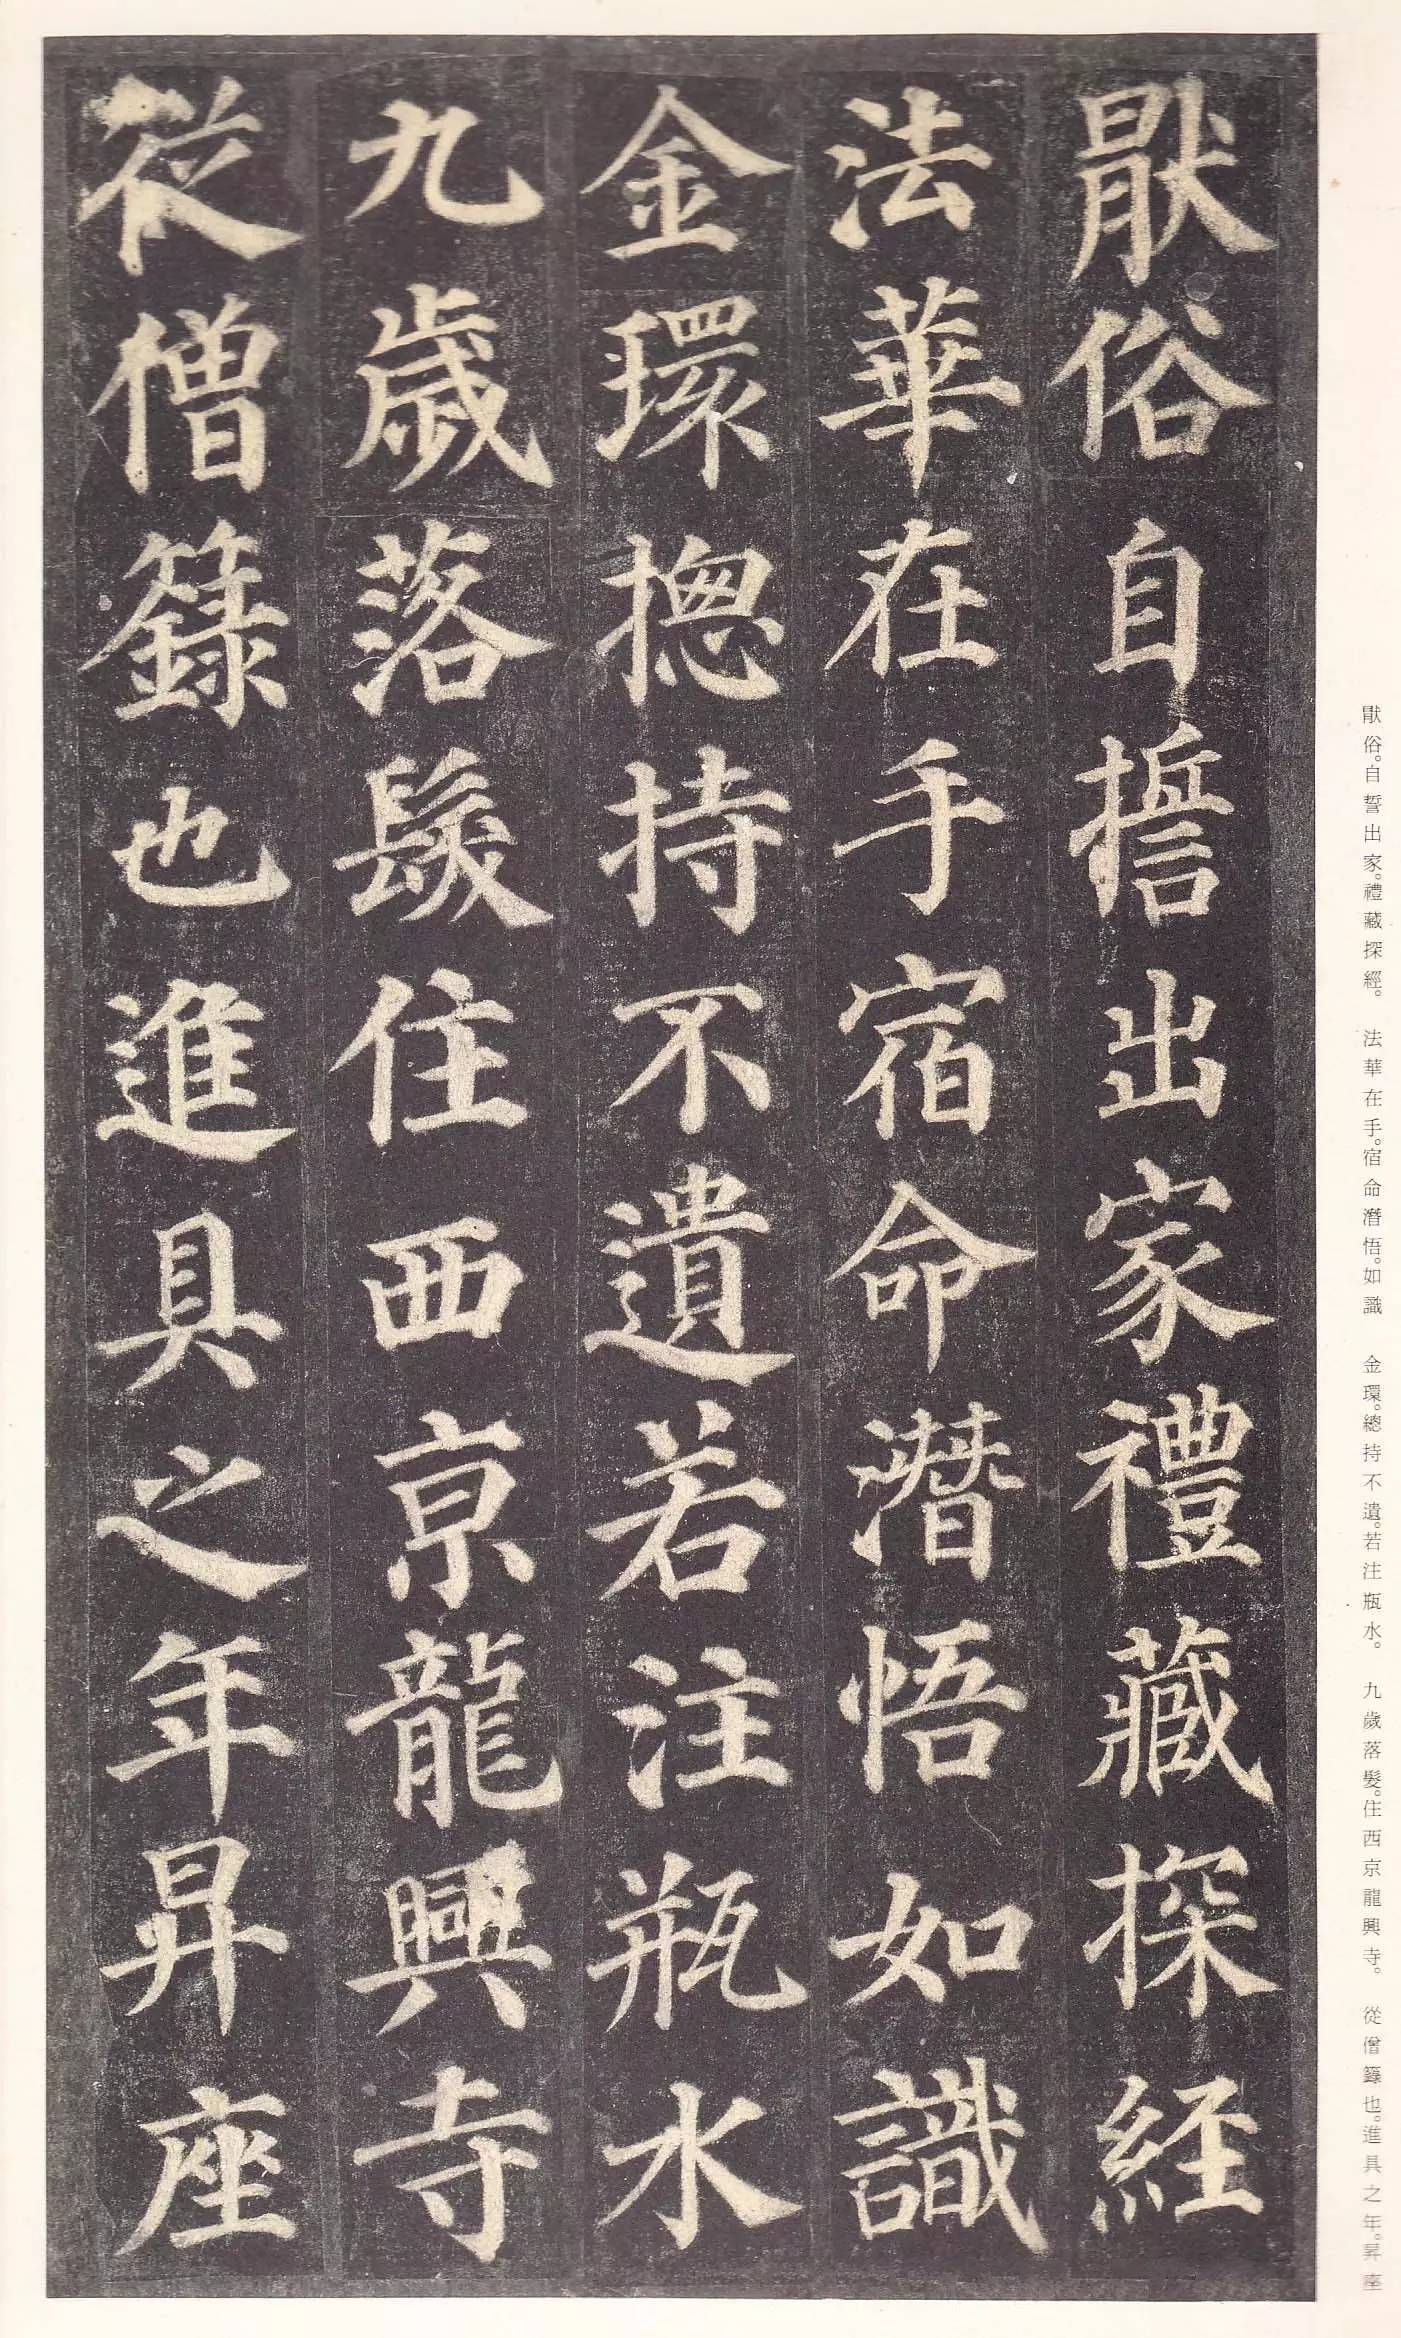 猒俗自誓出家禮藏探經
法華在手宿命潛悟如識
金環捴持不遺若注瓶水
九歲落髮住西京龍興寺
從僧籙也進具之年昇座
猒俗。自誓出家。禮藏探經。 法華在手。宿命潛悟。如識 金環。總持不遺。若注瓶水。 九歲落髮。住西京龍興寺。 從僧籙也。進具之年。昇座